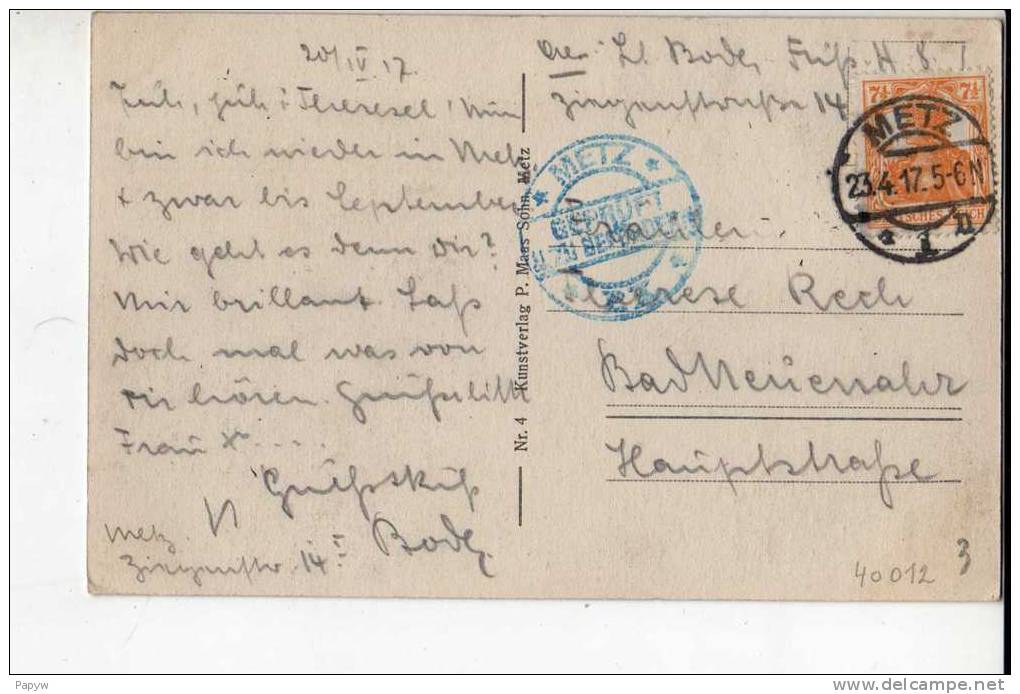 20/IV.17.
Theresel! Nun
bin ich wieder in Metz
+ zwar bis September
Wie geht es denn Dir?
Mir brillant. Laß
doch mal was von
dir hören.
Frau X....
Gruß + Kuß
Bode
Metz.
Ziegenstr. 14 I
Nr. 4 Kunstverlag P. Maas Sohn, Metz
Lt. Bode,
Ziegenstraße 14
7½ 7½
METZ
23.4.17.5-6N
METZ
GEPRÜFT
U. ZU BEFÖRDERN
Fräulein
Therese Rech
Bad Neuenahr
Hauptstraße
40012
3
Papyw
delcampe.net